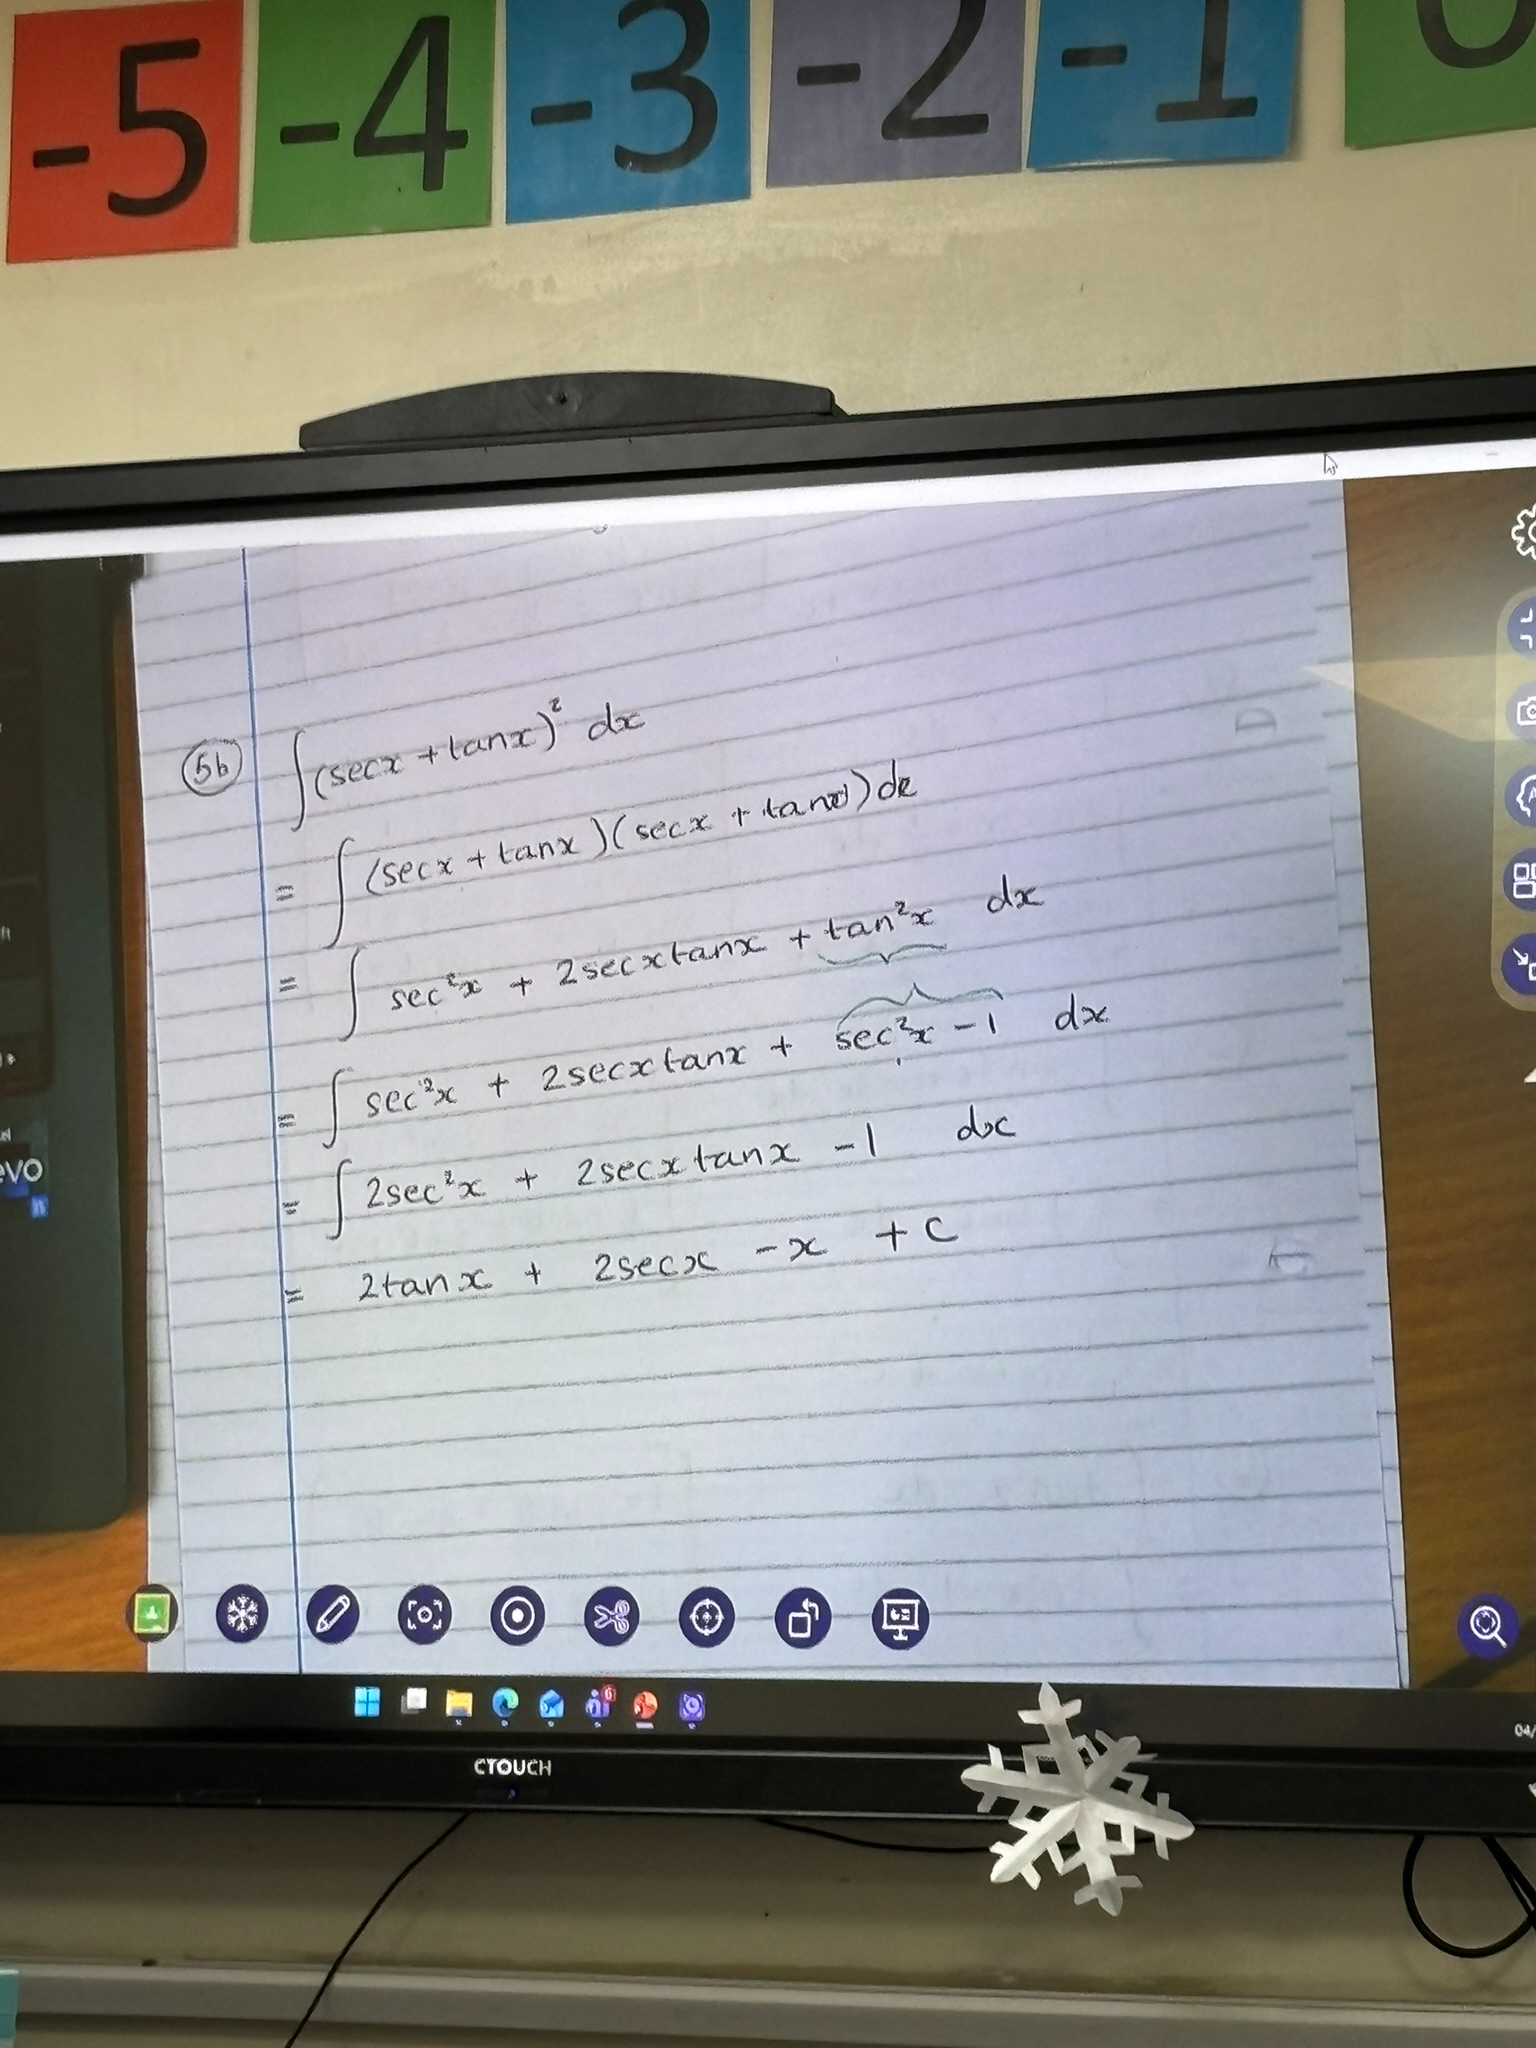 -5 -4 -3 -2 -1 0
5b ∫(secx + tanx)² dx
= ∫(secx + tanx)(secx + tanx)dx
= ∫ sec²x + 2secxtanx + tan²x dx
= ∫ sec²x + 2secxtanx + sec²x - 1 dx
= ∫ 2sec²x + 2secxtanx - 1 dx
= 2tanx + 2secx - x + C
evo
6
04/
CTOUCH